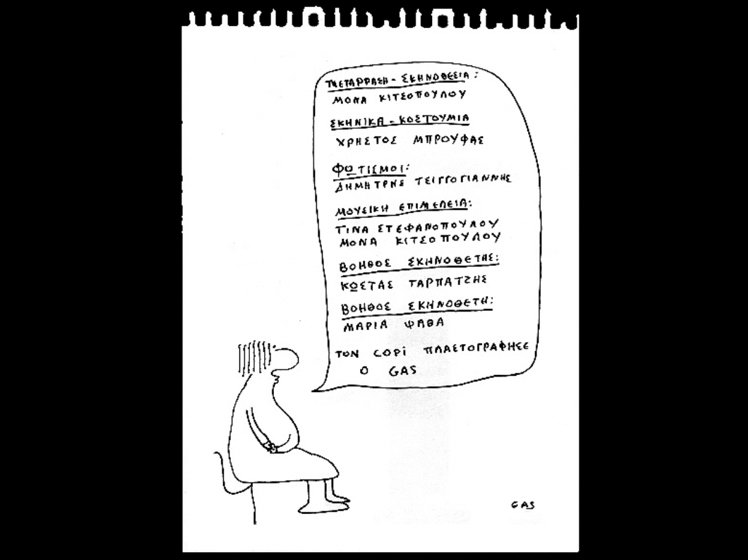 ΜΕΤΑΦΡΑΣΗ - ΣΚΗΝΟΘΕΣΙΑ:
ΜΟΝΑ ΚΙΤΣΟΠΟΥΛΟΥ
ΣΚΗΝΙΚΑ - ΚΟΣΤΟΥΜΙΑ
ΧΡΗΣΤΟΣ ΜΠΡΟΥΦΑΣ
ΦΩΤΙΣΜΟΙ:
ΔΗΜΗΤΡΗΣ ΤΣΙΓΓΟΓΙΑΝΝΗΣ
ΜΟΥΣΙΚΗ ΕΠΙΜΕΛΕΙΑ:
ΤΙΝΑ ΣΤΕΦΑΝΟΠΟΥΛΟΥ
ΜΟΝΑ ΚΙΤΣΟΠΟΥΛΟΥ
ΒΟΗΘΟΣ ΣΚΗΝΟΘΕΤΗΣ:
ΚΩΣΤΑΣ ΤΑΡΠΑΤΖΗΣ
ΒΟΗΘΟΣ ΣΚΗΝΟΘΕΤΗ:
ΜΑΡΙΑ ΨΑΘΑ
ΤΟΝ COPi ΠΛΑΣΤΟΓΡΑΦΗΣΕ
Ο GAS
GAS